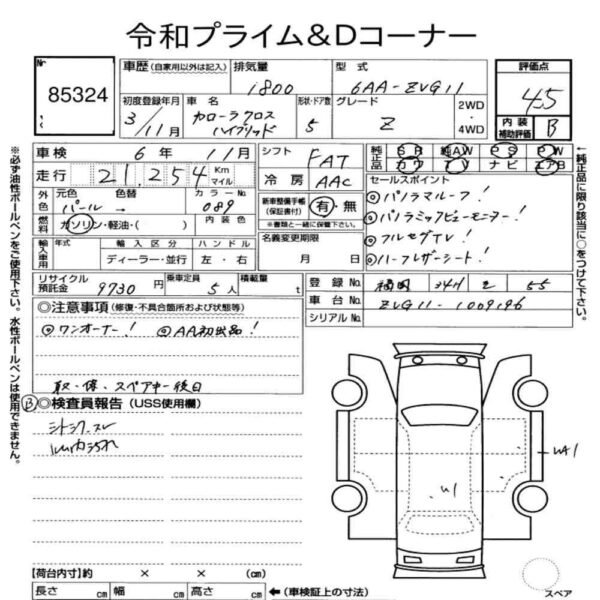 令和プライム&Dコーナー
Nr 85324
車歴 (自家用以外は記入) 排気量 1800 型式 6AA-ZVG11
評価点 4.5
初度登録年月 3/11月 車名 カローラクロス ハイブリッド 形状・ドア数 5 グレード Z 2WD・4WD
内装補助評価 B
車検 6年 11月 シフト FAT 純正品 SR 純AW PS PW
カワ TV ナビ エアB
走行 21,254 Km マイル 冷房 AAC
セールスポイント
外色 元色 パール 色替 カラーNo. 089
新車整備手帳(保証書付) 有・無
※書類と一緒に保管下さい
◎パノラマルーフ!
◎パノラミックビューモニター!
◎フルセグTV!
◎ハーフレザーシート!
燃料 ガソリン・軽油・( ) 内装色
輸入車用 年式 輸入区分 ハンドル
ディーラー・並行 左・右
名義変更期限 月 日
リサイクル預託金 9730円 乗車定員 5人 積載量 t
登録No. 福岡 341 55
車台No. ZVG11-1009196
シリアルNo.
◎注意事項 (修復・不具合箇所および状態等)
◎ワンオーナー! ◎AA初出品!
取・保・スペアキー後日
B ◎検査員報告 (USS使用欄)
シートシワ・スレ
ルーム内汚れ
U1
UA1
【荷台内寸】約 × × (cm)
長さ cm 幅 cm 高さ cm ←(車検証上の寸法)
スペア
※必ず油性ボールペンをご使用下さい。水性ボールペンは使用できません。
←純正品に限り該当に○をつけて下さい。